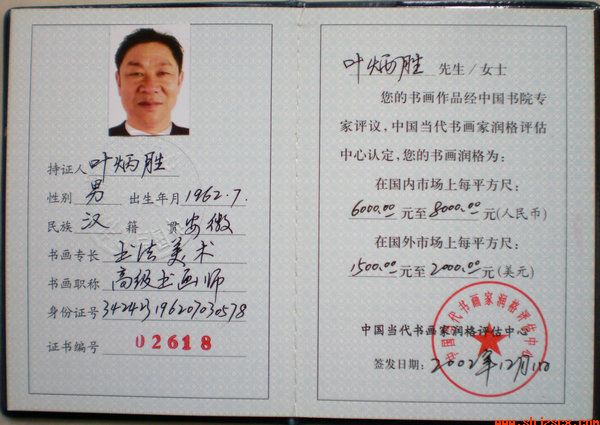 持证人 叶炳胜
性别 男 出生年月 1962.7.
民族 汉 籍贯 安徽
书画专长 书法美术
书画职称 高级书画师
身份证号 342423196207030578
证书编号 02618
叶炳胜 先生/女士
您的书画作品经中国书院专
家评议，中国当代书画家润格评估
中心认定，您的书画润格为：
在国内市场上每平方尺：
6000.00元至8000.00元(人民币)
在国外市场上每平方尺：
1500.00元至2000.00元(美元)
中国当代书画家润格评估中心
中国当代书画家润格评估中心
签发日期：2002年12月
www.shjzscx.com